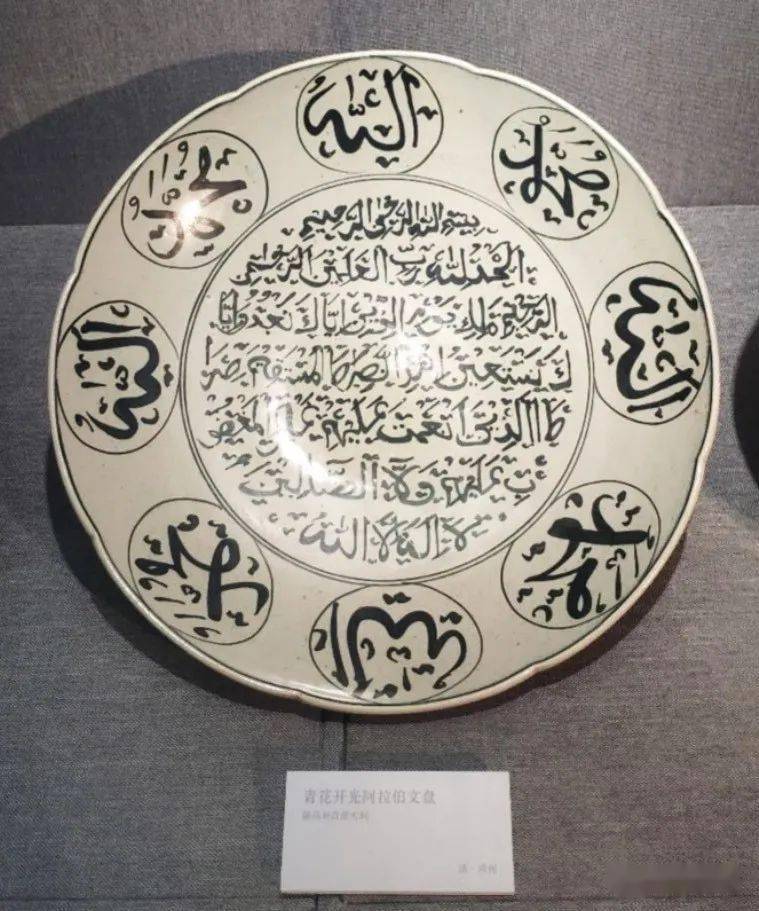 الله
محمد
محمد
بسم الله الرحمن الرحيم
الحمد لله رب العلمين الرحمن
الرحيم ملك يوم الدين اياك نعبد وايا
ك نستعين اهدنا الصراط المستقيم صرا
ط الذين انعمت عليهم غير المغضو
ب عليهم ولا الضالين
لا اله الا الله
الله
الله
محمد
محمد
الله
青花开光阿拉伯文盘